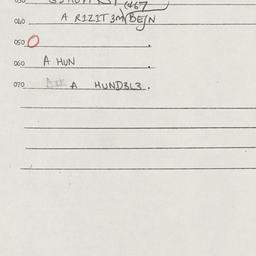 (467
040 A RIZIT 3M (BEJN
050 .
060 A HUN .
070 A HUND3L3.